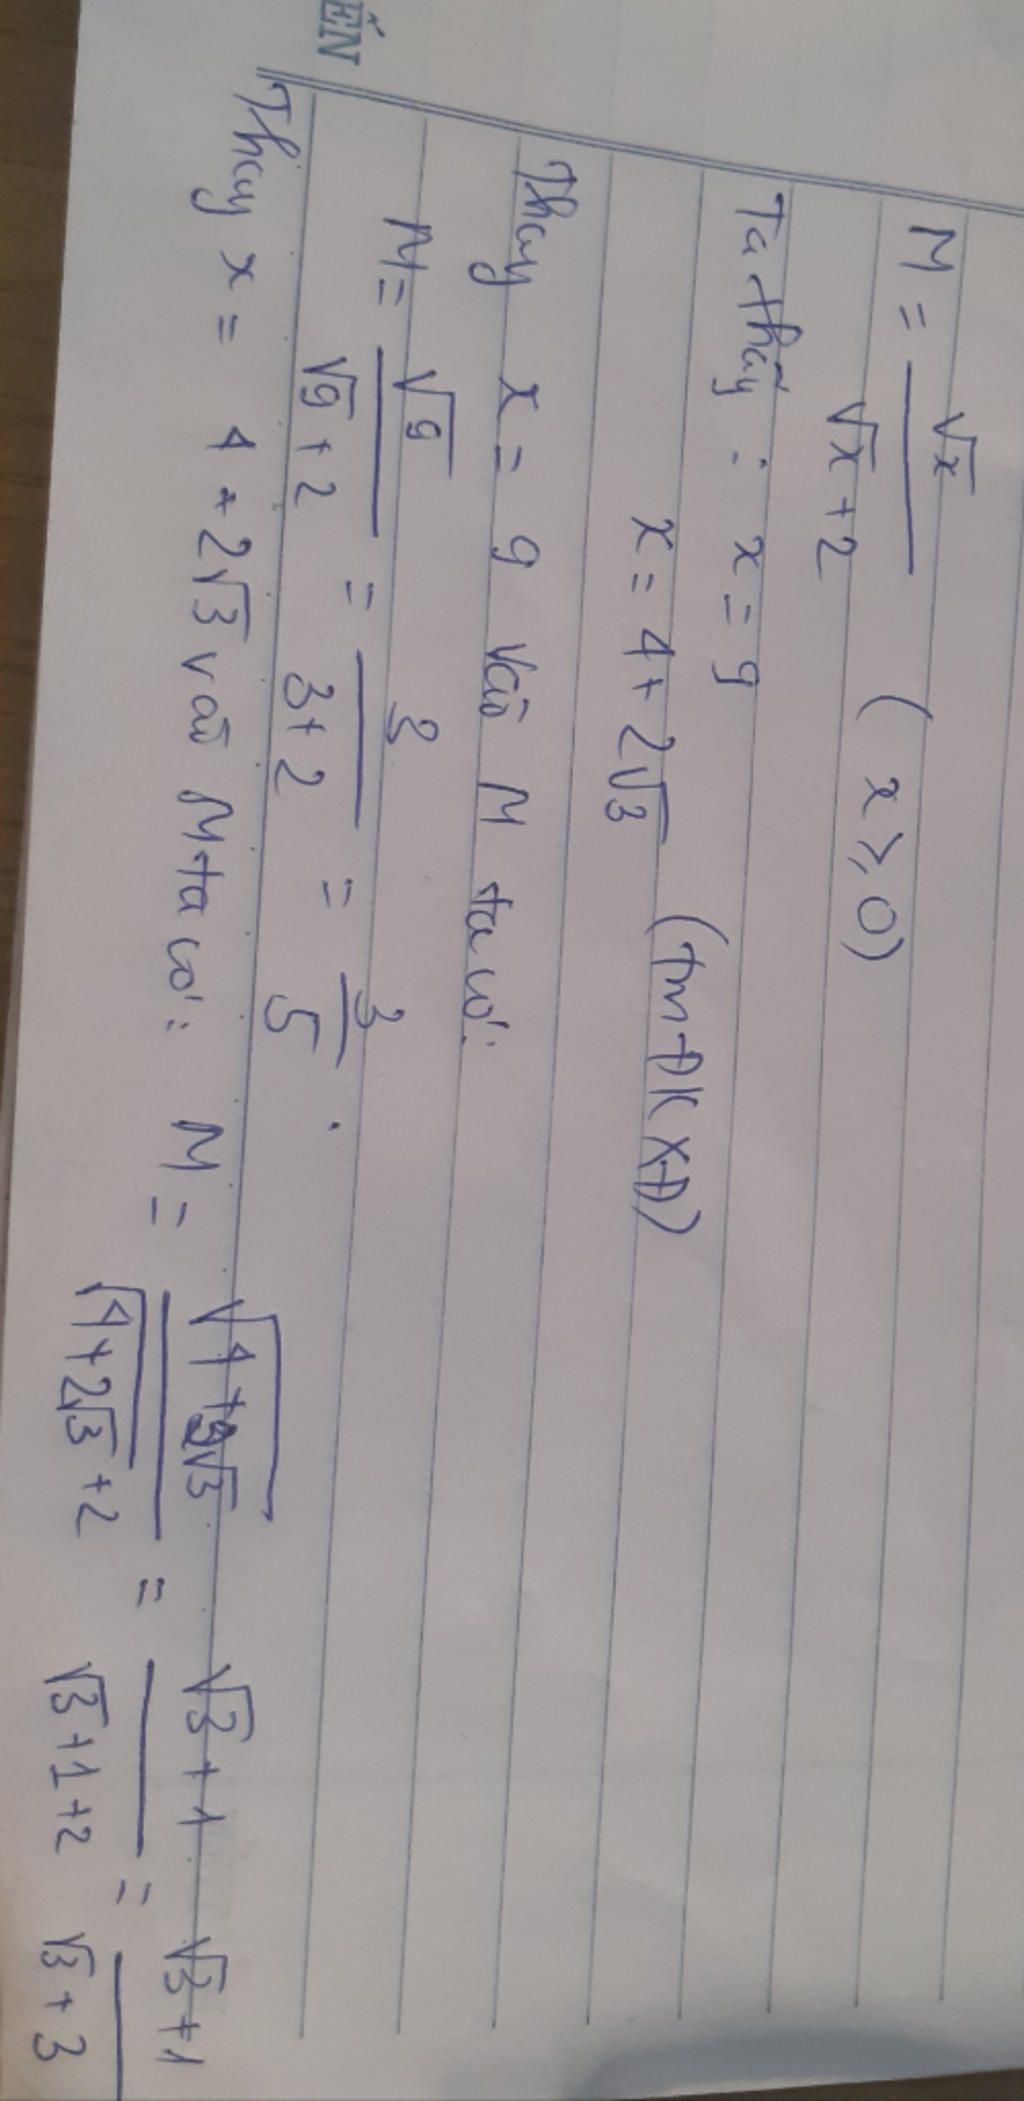 ẾN
M = √x / (√x + 2) (x ≥ 0)
Ta thấy : x = 9
x = 4 + 2√3 (tm ĐKXĐ)
Thay x = 9 vào M ta có:
M = √9 / (√9 + 2) = 3 / (3 + 2) = 3/5 .
Thay x = 4 + 2√3 vào M ta có: M = √(4 + 2√3) / (√(4 + 2√3) + 2) = (√3 + 1) / (√3 + 1 + 2) = (√3 + 1) / (√3 + 3)